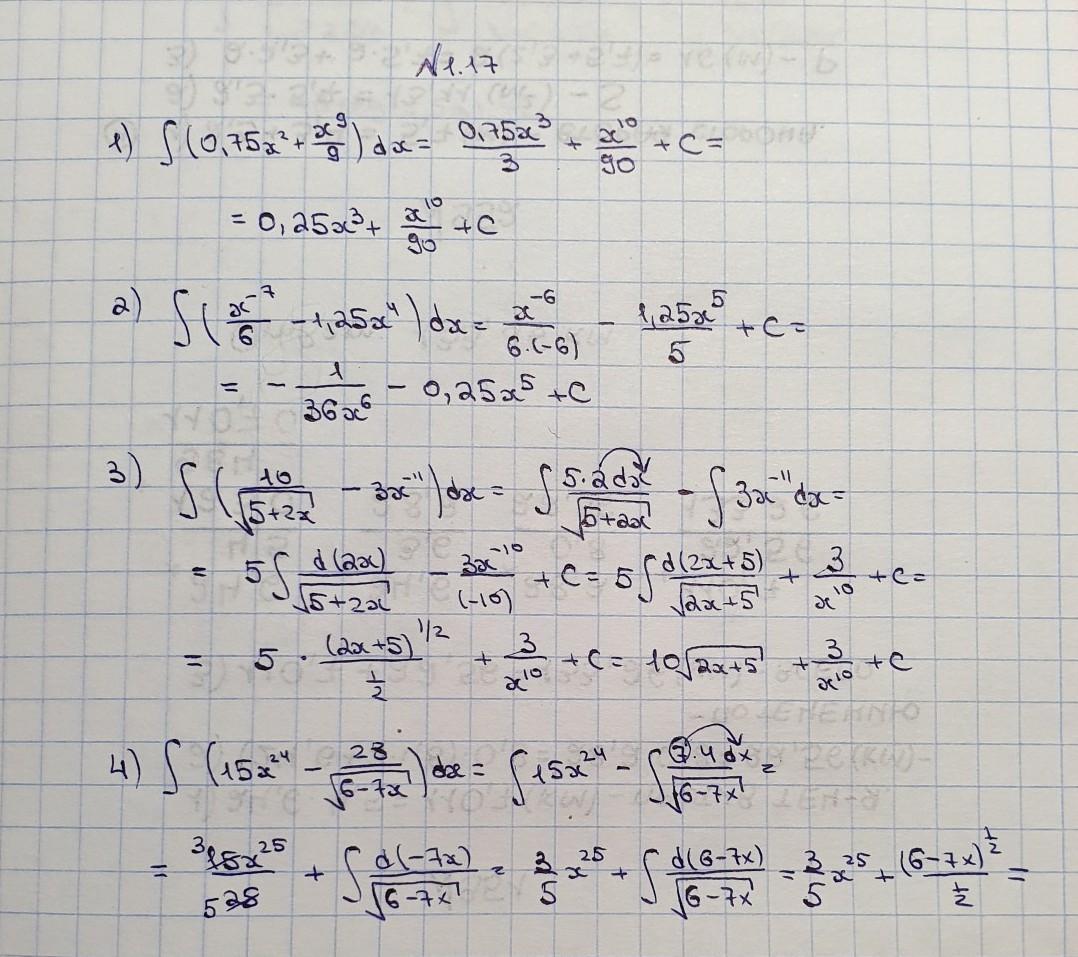 №1.17
1) ∫(0,75x² + x⁹/9)dx = 0,75x³/3 + x¹⁰/90 + C =
= 0,25x³ + x¹⁰/90 + C
2) ∫(x⁻⁷/6 − 1,25x⁴)dx = x⁻⁶/(6·(−6)) − 1,25x⁵/5 + C =
= − 1/(36x⁶) − 0,25x⁵ + C
3) ∫(10/√(5+2x) − 3x⁻¹¹)dx = ∫ 5·2dx/√(5+2x) − ∫3x⁻¹¹dx =
= 5∫ d(2x)/√(5+2x) − 3x⁻¹⁰/(−10) + C = 5∫ d(2x+5)/√(2x+5) + 3/x¹⁰ + C =
= 5 · (2x+5)^(1/2)/(1/2) + 3/x¹⁰ + C = 10√(2x+5) + 3/x¹⁰ + C
4) ∫(15x²⁴ − 28/√(6−7x))dx = ∫15x²⁴ − ∫ 7·4dx/√(6−7x) =
= ³15x²⁵/₅28 + ∫ d(−7x)/√(6−7x) = 3/5 x²⁵ + ∫ d(6−7x)/√(6−7x) = 3/5 x²⁵ + (6−7x)^(1/2)/(1/2) =